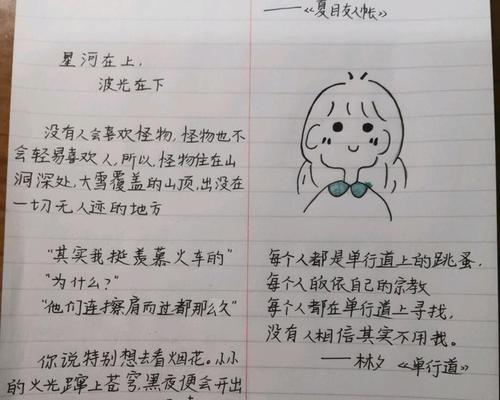 星河在上，
波光在下
没有人会喜欢怪物，怪物也不
会轻易喜欢人，所以，怪物住在山
洞深处，大雪覆盖的山顶，出没在
一切无人迹的地方
"其实我挺羡慕火车的"
"为什么？"
"他们连擦肩而过都那么久"
你说特别想去看烟花。小小
的火光蹿上苍穹，黑夜便会开出
——《夏目友人帐》
每个人都是单行道上的跳蚤，
每个人皈依自己的宗教
每个人都在单行道上寻找，
没有人相信其实不用我。
——林夕《单行道》